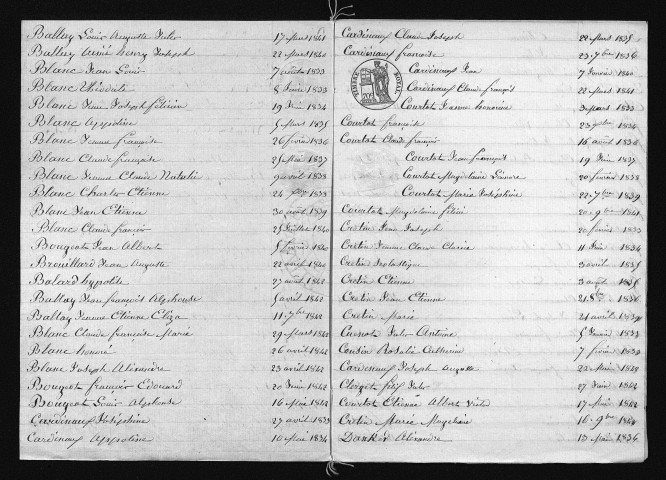 Ballay Louis Auguste Jules 17 Mars 1841
Ballay Aimé henry Joseph 22 Mars 1840
Blanc Jean Louis 7 août 1833
Blanc Théodule 8 février 1833
Blanc Jean Joseph félicien 19 Juin 1834
Blanc Appoline 5 Mars 1835
Blanc Jeanne françoise 26 février 1836
Blanc Claude françoise 25 Mai 1837
Blanc Jeanne Claude Natalie 9 avril 1838
Blanc Charles Etienne 24 1838
Blanc Jean Etienne 30 août 1839
Blanc Claude françois 25 Juillet 1840
Bougeot Jean Albert 5 février 1840
Brouillard Jean Auguste 22 avril 1840
Balard hypolite 23 avril 1842
Ballay Jean françois Alphonse 5 avril 1842
Ballay Jeanne Etienne Eliza 11 7bre 1842
Blanc Claude françoise Marie 29 Mars 1842
Blanc honoré 26 avril 1842
Blanc Joseph Alixandre 23 avril 1842
Bougeot françois Edouard 20 Juin 1842
Bougeot Louis Alphonse 16 Mai 1842
Cardinaux Joséphine 27 avril 1833
Cardinaux Appoline 10 Mai 1834
Cardinaux Claude Joseph 22 Mars 1835
Cardinaux françoise 23 7bre 1836
TIMBRE ROYAL
Cardinaux Jean 7 Janvier 1840
Cardinaux Claude françois 22 Mars 1841
Courtot Jeanne honorine 3 Mars 1833
Courtot françoise 23 1834
Courtot Claude françois 16 août 1836
Courtot Jean françois 19 Juin 1837
Courtot Magdelaine 20 février 1838
Courtot Marie Joséphine 22 7bre 1839
Courtot Magdelaine 20 9bre 1841
Cretin Jean Joseph 20 février 1833
Cretin Jeanne Claude Clarice 11 Juin 1834
Cretin Scolastique 3 avril 1835
Cretin Etienne 3 août 1835
Cretin Jean Etienne 21 8bre 1836
Cretin Marie 21 avril 1839
Cuenot Jules Antoine 5 Janvier 1833
Cousin Rosalie Catherine 7 février 1839
Cardinaux Joseph Auguste 23 Mai 1842
Clerget félix Jules 27 Juin 1842
Courtot Etienne Albert 17 Mai 1842
Cretin Marie 16 9bre 1842
Alixandre 13 Mai 1836